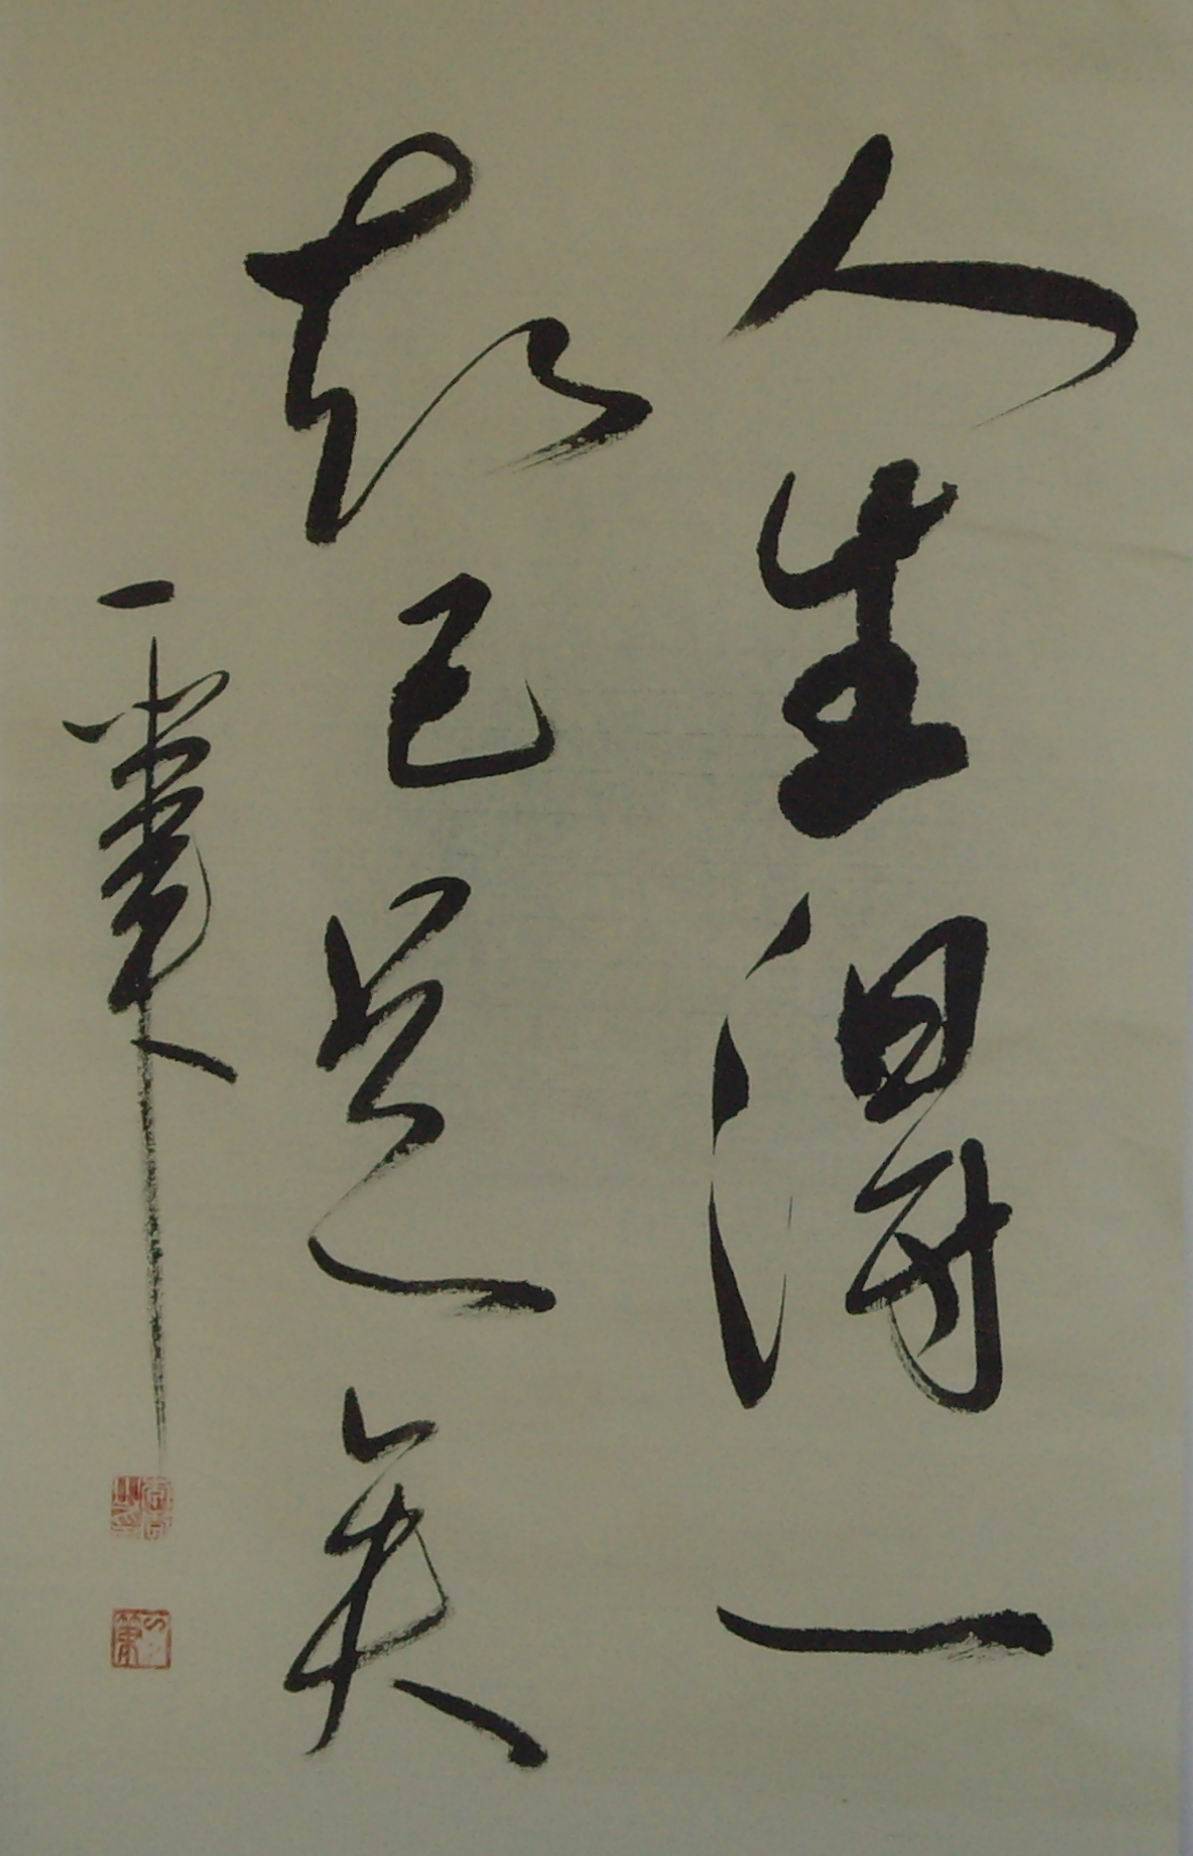 人生得一
知己足矣